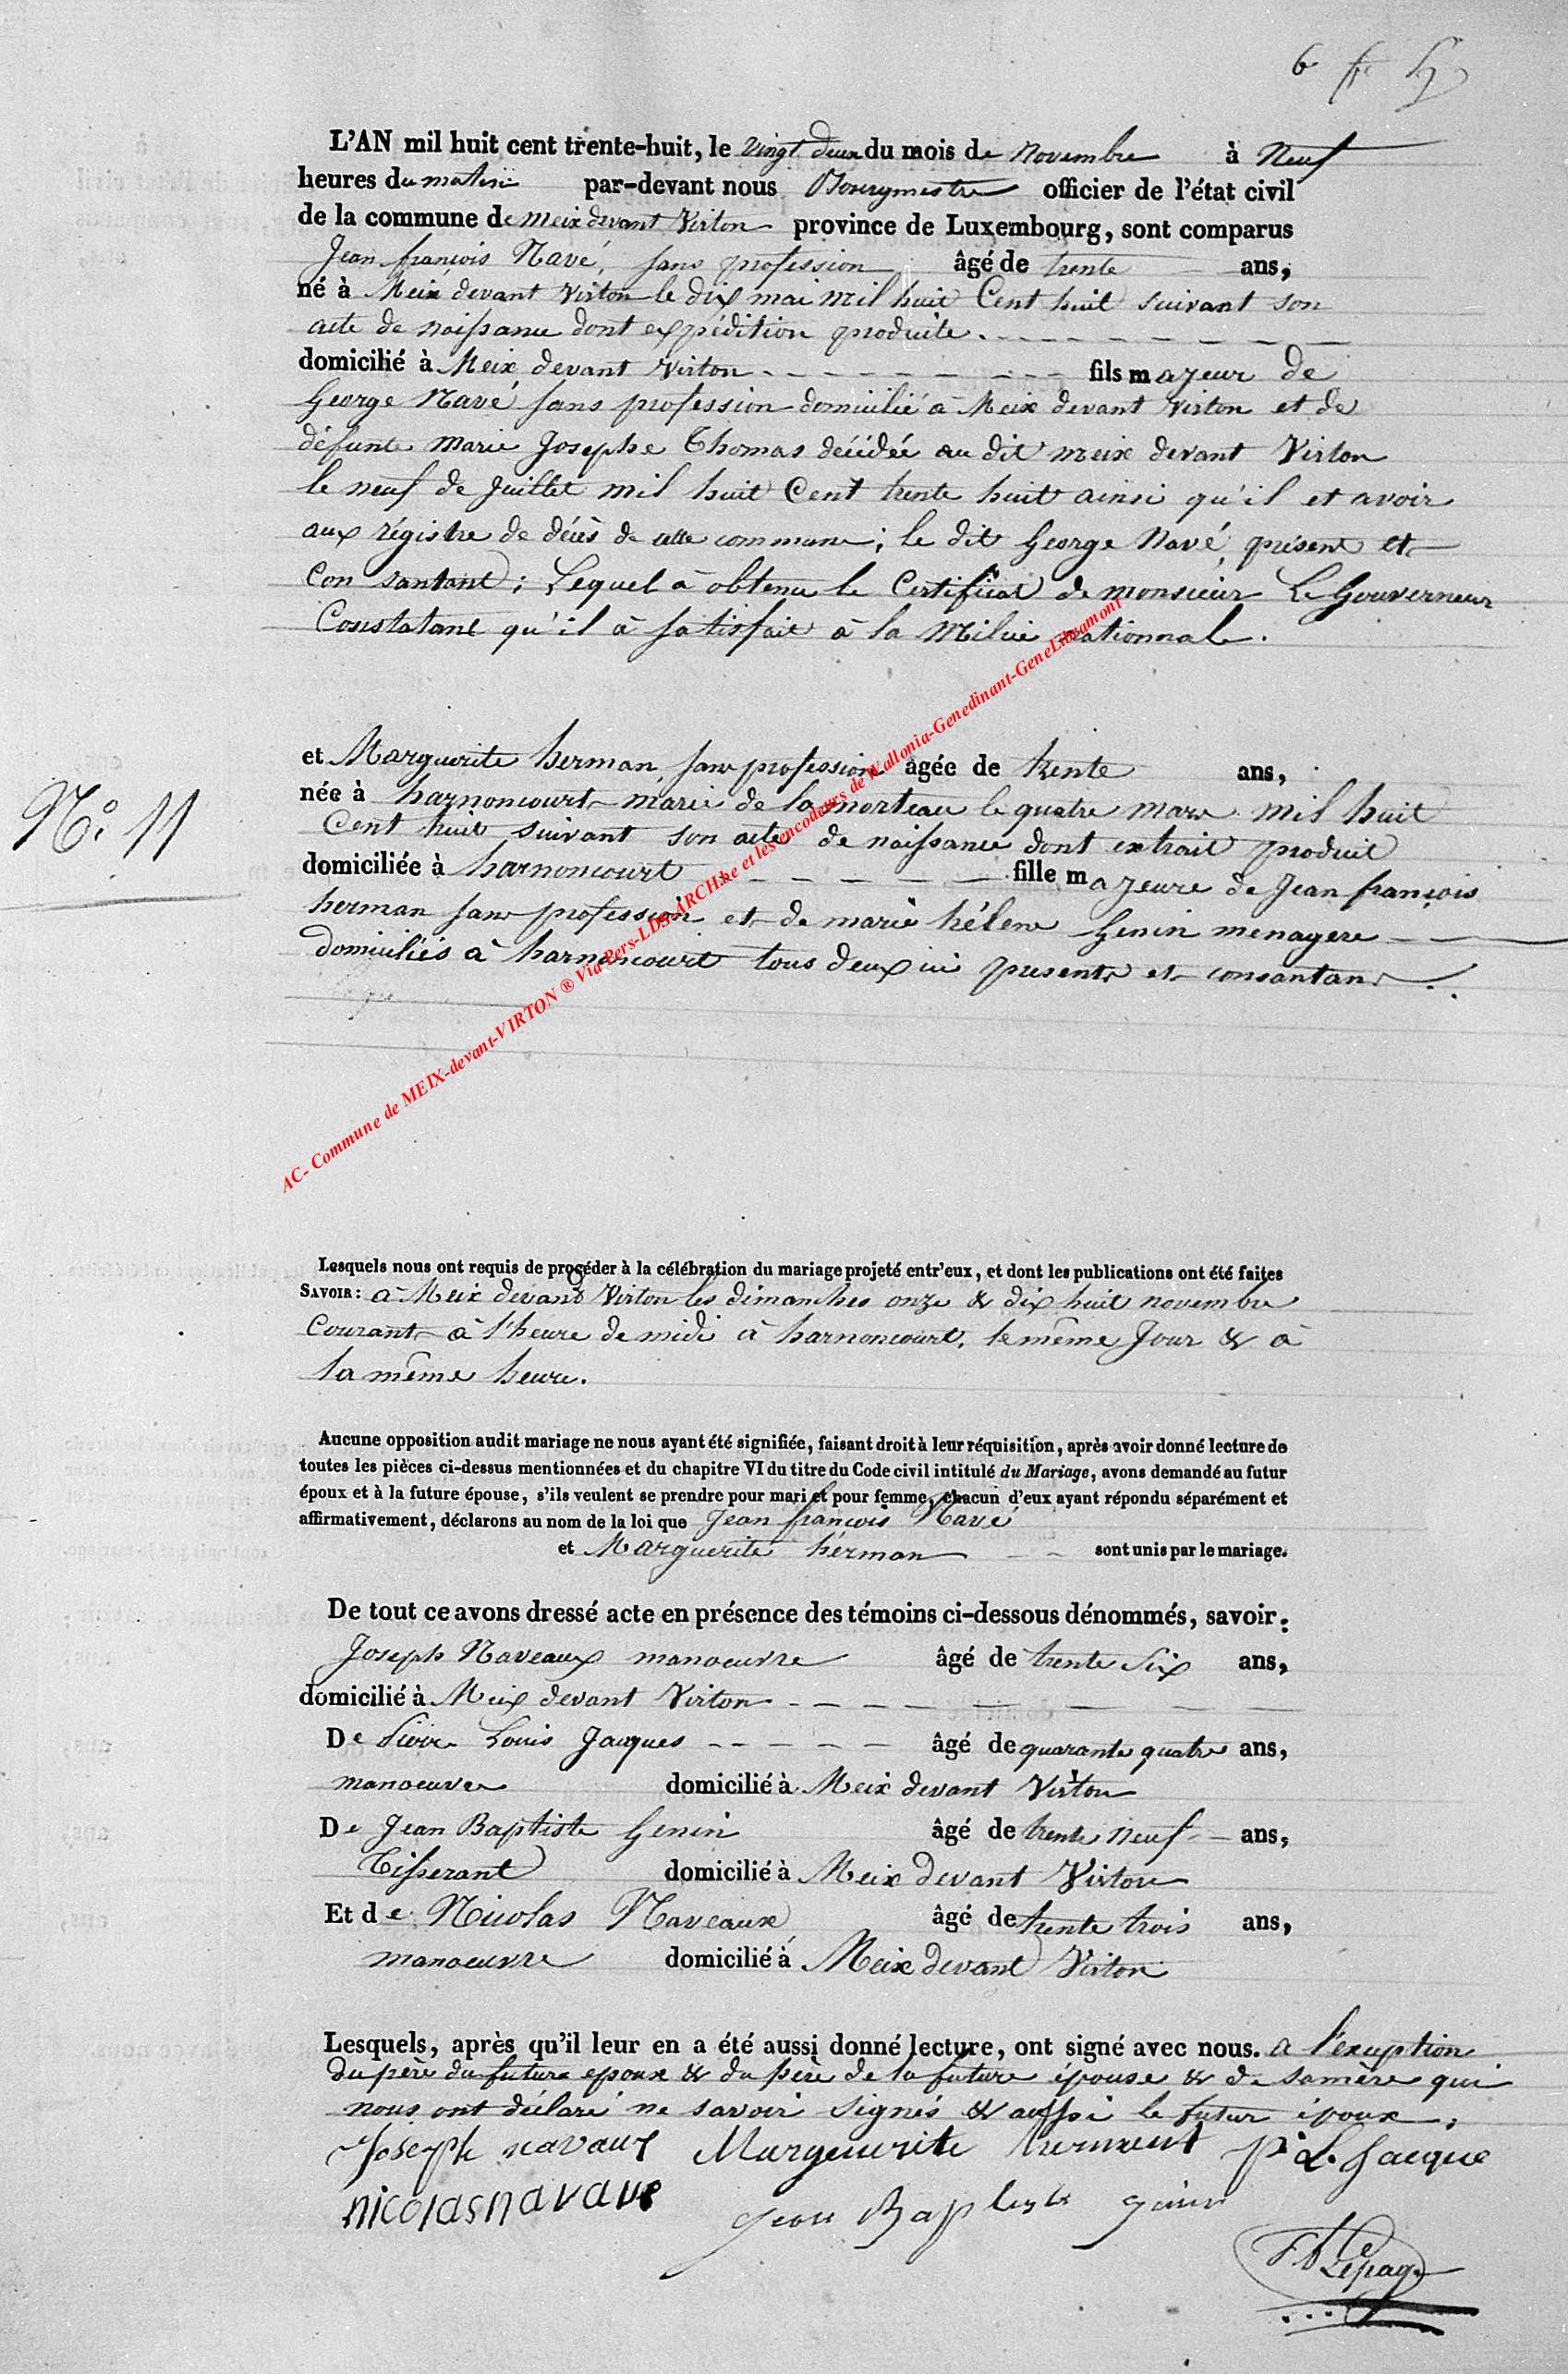 6
L'AN mil huit cent trente-huit, le vingt deux du mois de novembre à Neuf
heures du matin par-devant nous Bourgmestre officier de l'état civil
de la commune de meix devant Virton province de Luxembourg, sont comparus
Jean françois Navé, sans profession âgé de trente ans,
né à Meix devant Virton le dix mai mil huit Cent huit suivant son
acte de naissance dont expédition produite.
domicilié à Meix devant Virton fils majeur de
George Navé sans profession domicilié à Meix devant Virton et de
défunte marie Josephe Thomas décédée au dit meix devant Virton
le neuf de Juillet mil huit Cent trente huit ainsi qu'il et avoir
aux régistre de décès de cette commune; le dit George Navé, présent et
Con santant; Lequel à obtenu le Certificat de monsieur Le Gouverneur
Constatant qu'il à satisfait à la Milice nationnale.
et Marguerite herman, sans profession âgée de trente ans,
N.° 11
née à harnoncourt marie de la morteau le quatre mars mil huit
Cent huit suivant son acte de naissance dont extrait produit
domiciliée à harnoncourt fille majeure de Jean françois
herman sans profession et de marie hélene Genin menagere
domiciliés à harnoncourt tous deux ici presents et consantans.
AC- Commune de MEIX-devant-VIRTON ® Via Pers-LDS-ARCH.be et les encodeurs de Wallonia-Genedinant-GeneLibramont
Lesquels nous ont requis de procéder à la célébration du mariage projeté entr'eux, et dont les publications ont été faites
SAVOIR: à Meix devant Virton les dimanches onze & dix huit novembre
Courant à l'heure de midi à harnoncourt, le même Jour & à
la même heure.
Aucune opposition audit mariage ne nous ayant été signifiée, faisant droit à leur réquisition, après avoir donné lecture de
toutes les pièces ci-dessus mentionnées et du chapitre VI du titre du Code civil intitulé du Mariage, avons demandé au futur
époux et à la future épouse, s'ils veulent se prendre pour mari et pour femme, chacun d'eux ayant répondu séparément et
affirmativement, déclarons au nom de la loi que Jean françois Navé
et Marguerite hérman sont unis par le mariage.
De tout ce avons dressé acte en présence des témoins ci-dessous dénommés, savoir:
Joseph Naveaux manoeuvre âgé de trente Six ans,
domicilié à Meix devant Virton
De Pierre Louis Jacques âgé de quarante quatre ans,
manoeuvre domicilié à Meix devant Virton
De Jean Baptiste Genin âgé de trente neuf ans,
Tisserant domicilié à Meix devant Virton
Et de Nicolas Naveaux âgé de trente trois ans,
manoeuvre domicilié à Meix devant Virton
Lesquels, après qu'il leur en a été aussi donné lecture, ont signé avec nous. a l'exception
du père du futur epoux & du père de la future épouse & de samère qui
nous ont déclaré ne savoir signés & aussi le futur époux.
Joseph navaux Marguerite hermant P. L. Jacque
nicolasnavaux Jean Baptiste genin
Lepage